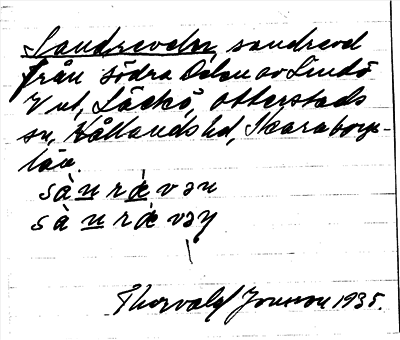 Sandreveln, sandrevel
från södra delen av Lindö
i Vut, Läckö, Otterstads
sn, Kållands hd, Skaraborgs-
län.
sàn rævən
sàn rævəṇ
Thorvald Jonsson 1935.